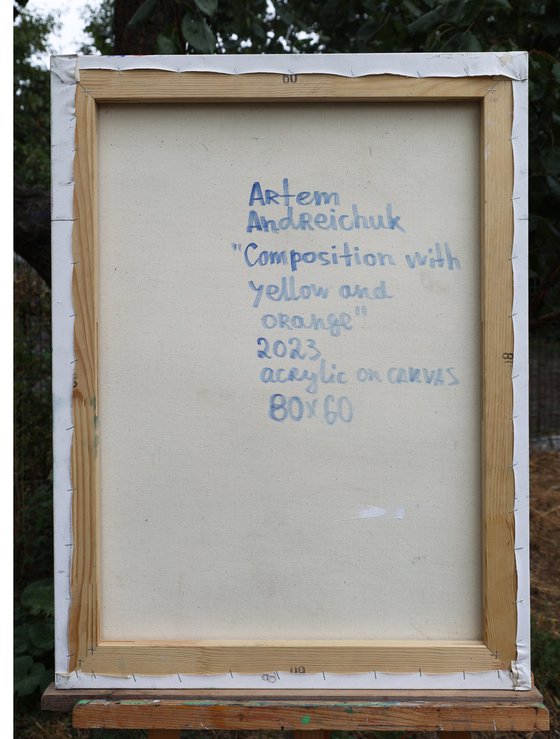 60
Artem
Andreichuk
"Composition with
yellow and
orange"
2023
acrylic on CANVAS
80x60